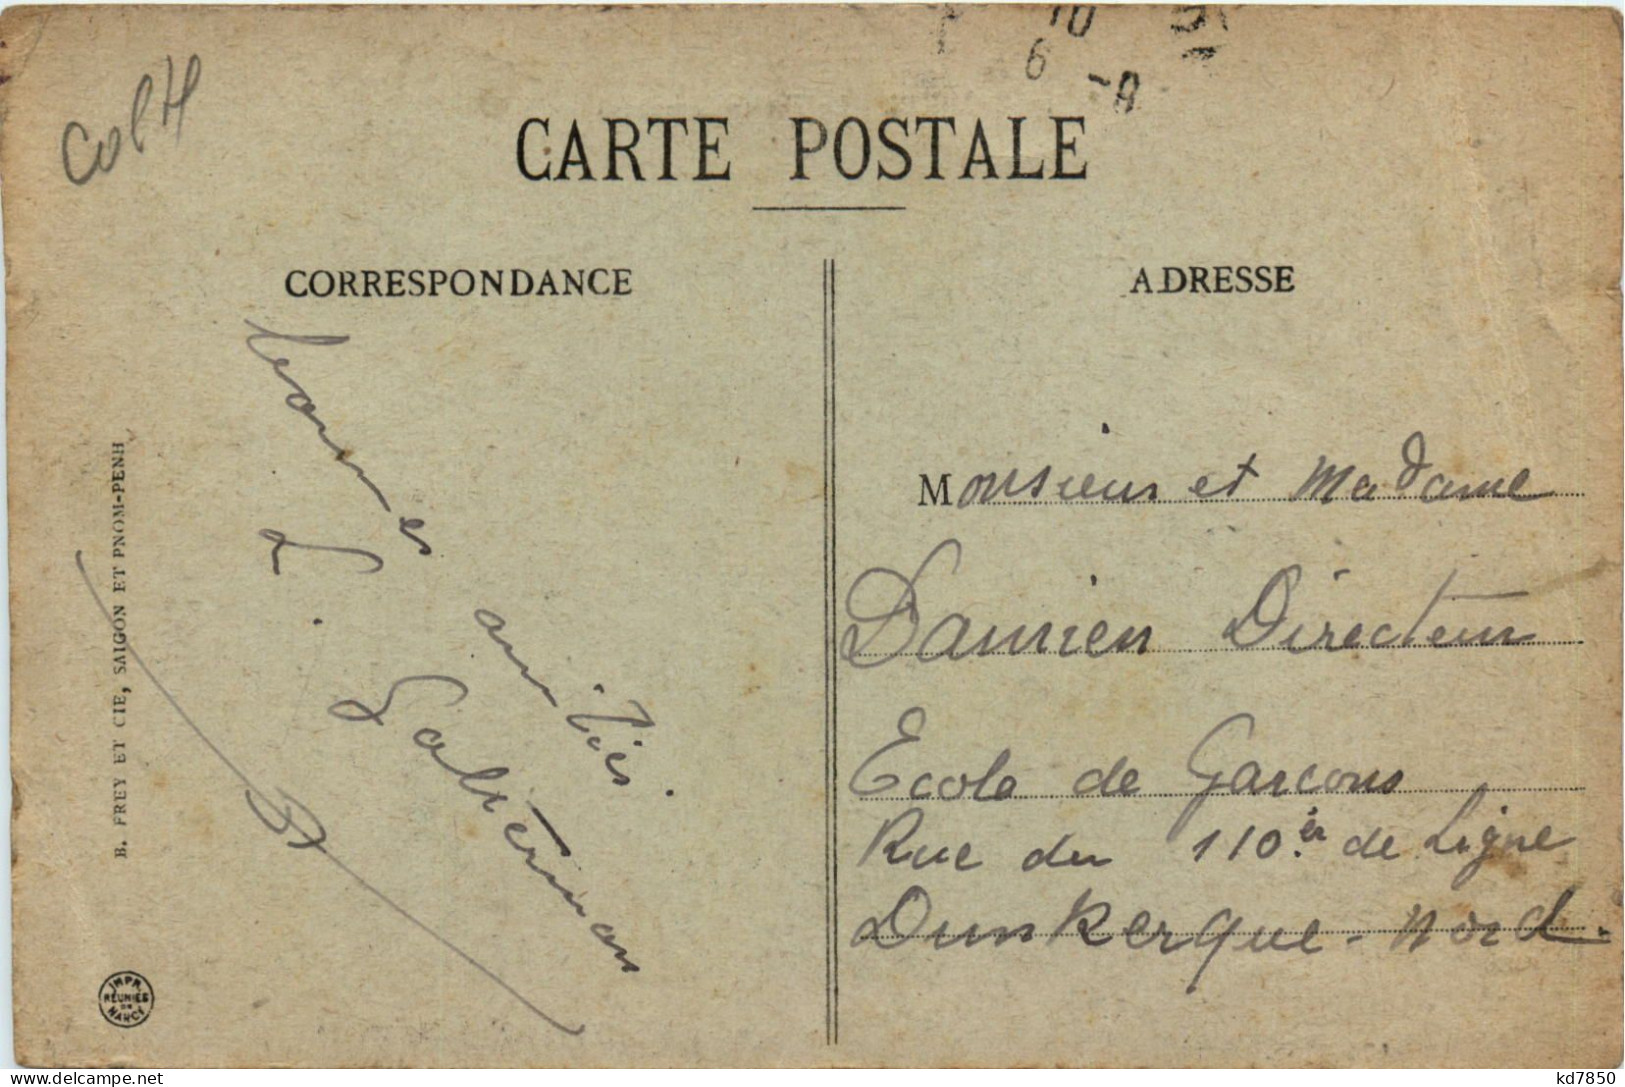 10
6 -8
Col H
CARTE POSTALE
CORRESPONDANCE
ADRESSE
Bonnes
amitiés.
L.
B. FREY ET CIE, SAIGON ET PNOM-PENH
IMPR.
RÉUNIES
DE
NANCY
Monsieur et Madame
Damien Directeur
Ecole de Garcons
Rue du 110.er de Ligne
Dunkerque - Nord.
delcampe.net
kd7850